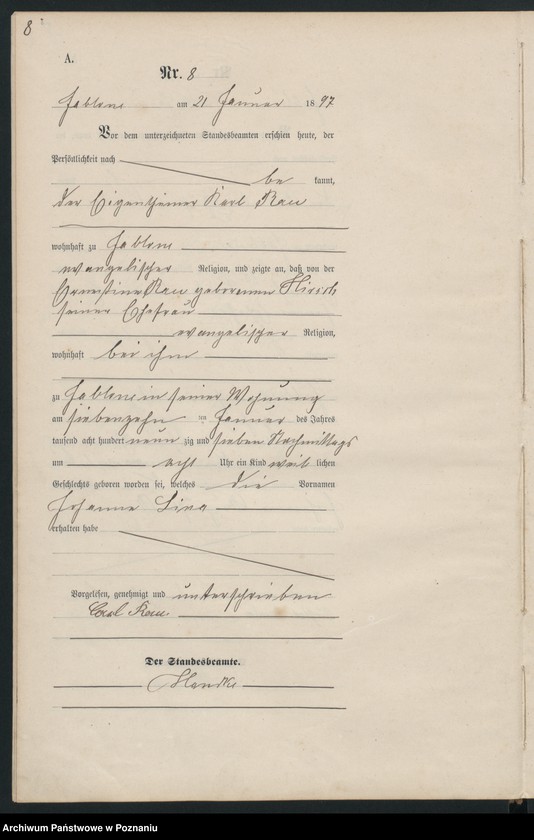 8
A.
Nr. 8
Jablone am 21 Januar 1897
Vor dem unterzeichneten Standesbeamten erschien heute, der
Persönlichkeit nach
be kannt,
der Eigenthümer Karl Rau
wohnhaft zu Jablone
evangelischer Religion, und zeigte an, daß von der
Ernestine Rau geborenen Hirsch
seiner Ehefrau
evangelischer Religion,
wohnhaft bei ihm
zu Jablone in seiner Wohnung
am siebenzehn ten Januar des Jahres
tausend acht hundert neun zig und sieben Nachmittags
um acht Uhr ein Kind weib lichen
Geschlechts geboren worden sei, welches die Vornamen
Johanna Lina
erhalten habe
Vorgelesen, genehmigt und unterschrieben
Carl Rau
Der Standesbeamte.
Archiwum Państwowe w Poznaniu